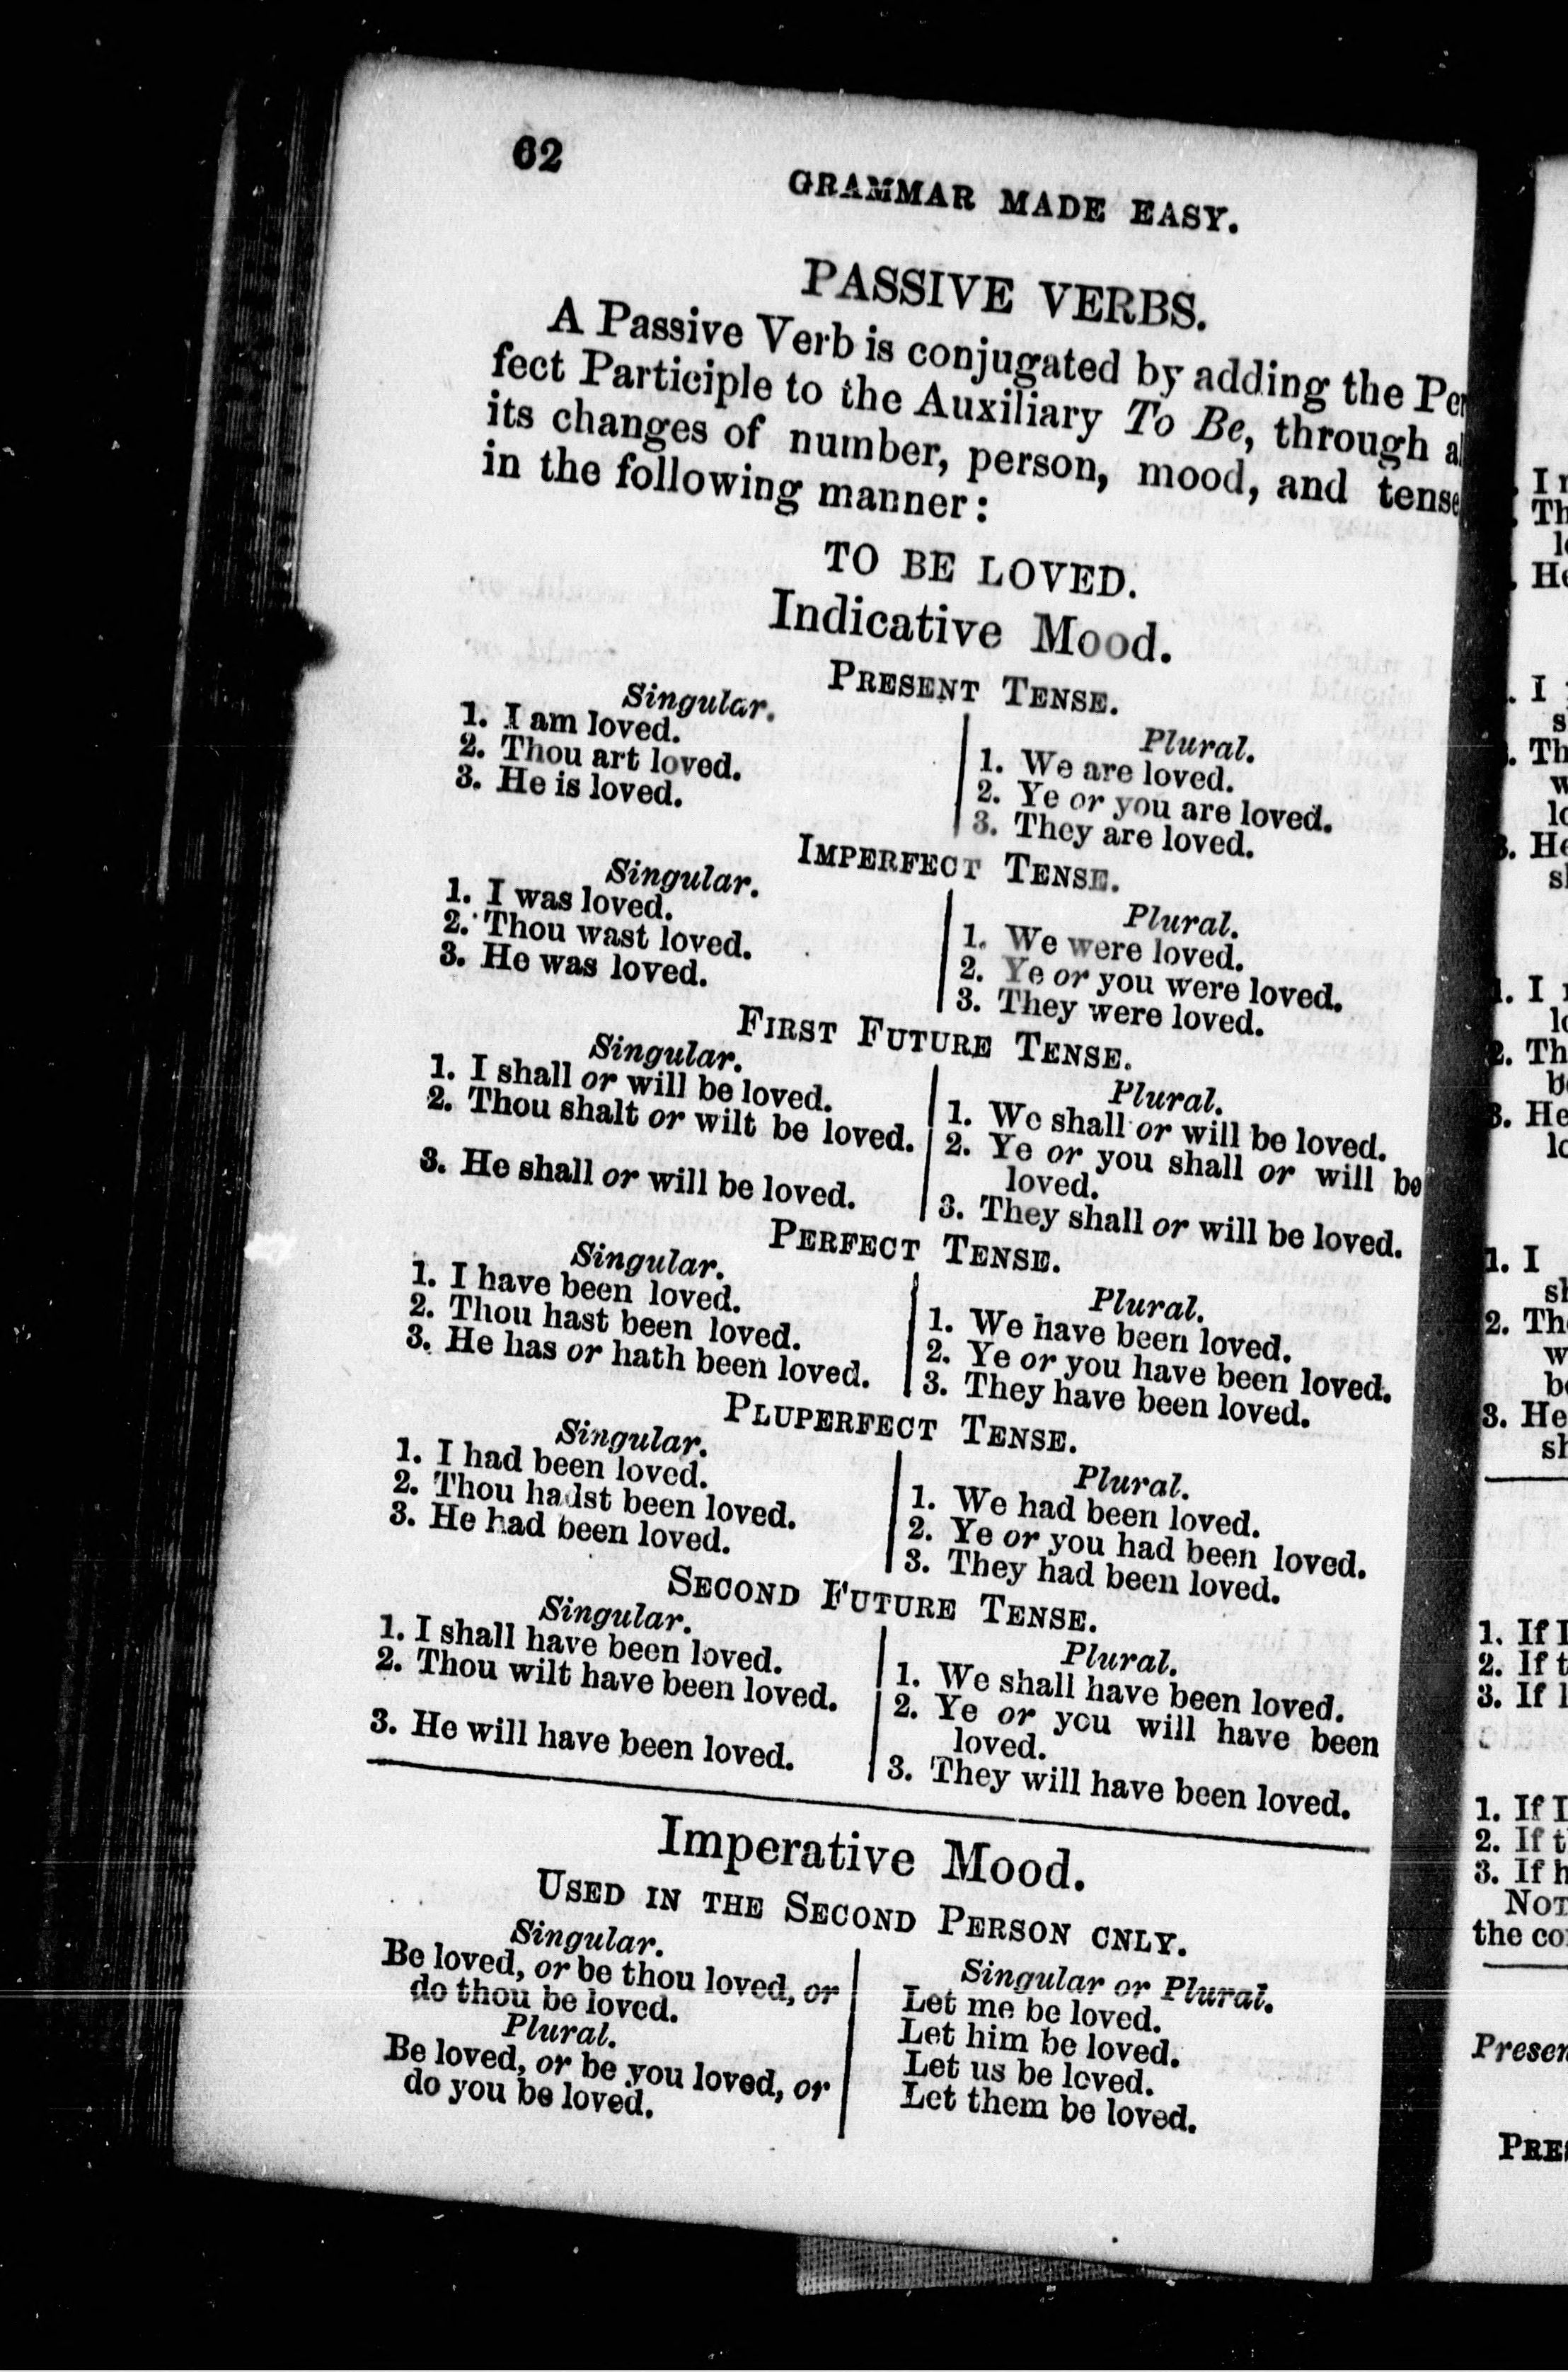 62
GRAMMAR MADE EASY.
PASSIVE VERBS.
A Passive Verb is conjugated by adding the Per
fect Participle to the Auxiliary To Be, through al
its changes of number, person, mood, and tense
in the following manner:
TO BE LOVED.
Indicative Mood.
PRESENT TENSE.
Singular.
1. I am loved.
2. Thou art loved.
3. He is loved.
Plural.
1. We are loved.
2. Ye or you are loved.
3. They are loved.
IMPERFECT TENSE.
Singular.
1. I was loved.
2. Thou wast loved.
3. He was loved.
Plural.
1. We were loved.
2. Ye or you were loved.
3. They were loved.
FIRST FUTURE TENSE.
Singular.
1. I shall or will be loved.
2. Thou shalt or wilt be loved.
3. He shall or will be loved.
Plural.
1. We shall or will be loved.
2. Ye or you shall or will be
loved.
3. They shall or will be loved.
PERFECT TENSE.
Singular.
1. I have been loved.
2. Thou hast been loved.
3. He has or hath been loved.
Plural.
1. We have been loved.
2. Ye or you have been loved.
3. They have been loved.
PLUPERFECT TENSE.
Singular.
1. I had been loved.
2. Thou hadst been loved.
3. He had been loved.
Plural.
1. We had been loved.
2. Ye or you had been loved.
3. They had been loved.
SECOND FUTURE TENSE.
Singular.
1. I shall have been loved.
2. Thou wilt have been loved.
3. He will have been loved.
Plural.
1. We shall have been loved.
2. Ye or you will have been
loved.
3. They will have been loved.
Imperative Mood.
USED IN THE SECOND PERSON ONLY.
Singular.
Be loved, or be thou loved, or
do thou be loved.
Plural.
Be loved, or be you loved, or
do you be loved.
Singular or Plural.
Let me be loved.
Let him be loved.
Let us be loved.
Let them be loved.
1. If I
2. If t
3. If
1. If I
2. If t
3. If h
NOT
the co
Presen
PRES